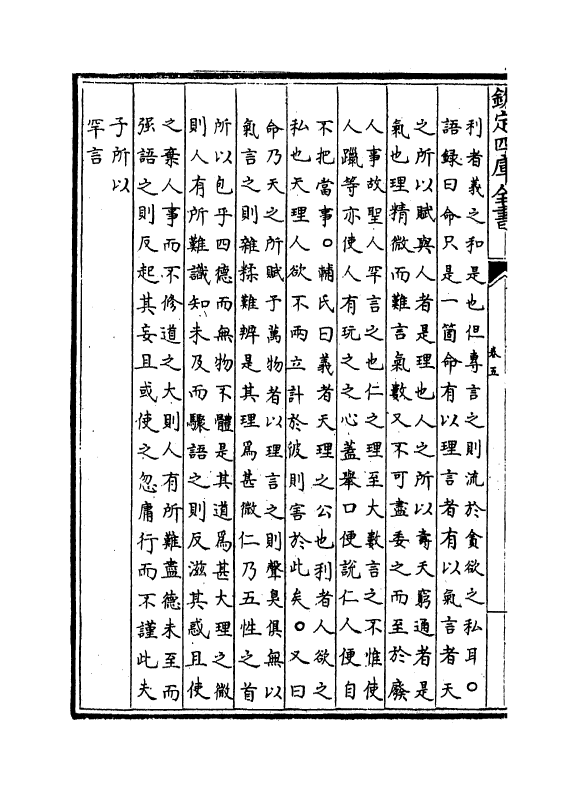 欽定四庫全書
卷五
利者義之和是也但專言之則流於貪欲之私耳○
語録曰命只是一箇命有以理言者有以氣言者天
之所以賦與人者是理也人之所以壽夭窮通者是
氣也理精微而難言氣數又不可盡委之而至於廢
人事故聖人罕言之也仁之理至大數言之不惟使
人躐等亦使人有玩之之心蓋舉口便說仁人便自
不把當事○輔氏曰義者天理之公也利者人欲之
私也天理人欲不兩立計於彼則害於此矣○又曰
命乃天之所賦予萬物者以理言之則聲臭俱無以
氣言之則雜糅難辨是其理爲甚微仁乃五性之首
所以包乎四德而無物不體是其道爲甚大理之微
則人有所難識知未及而驟語之則反滋其惑且使
之棄人事而不修道之大則人有所難盡德未至而
强語之則反起其妄且或使之忽庸行而不謹此夫
子所以
罕言